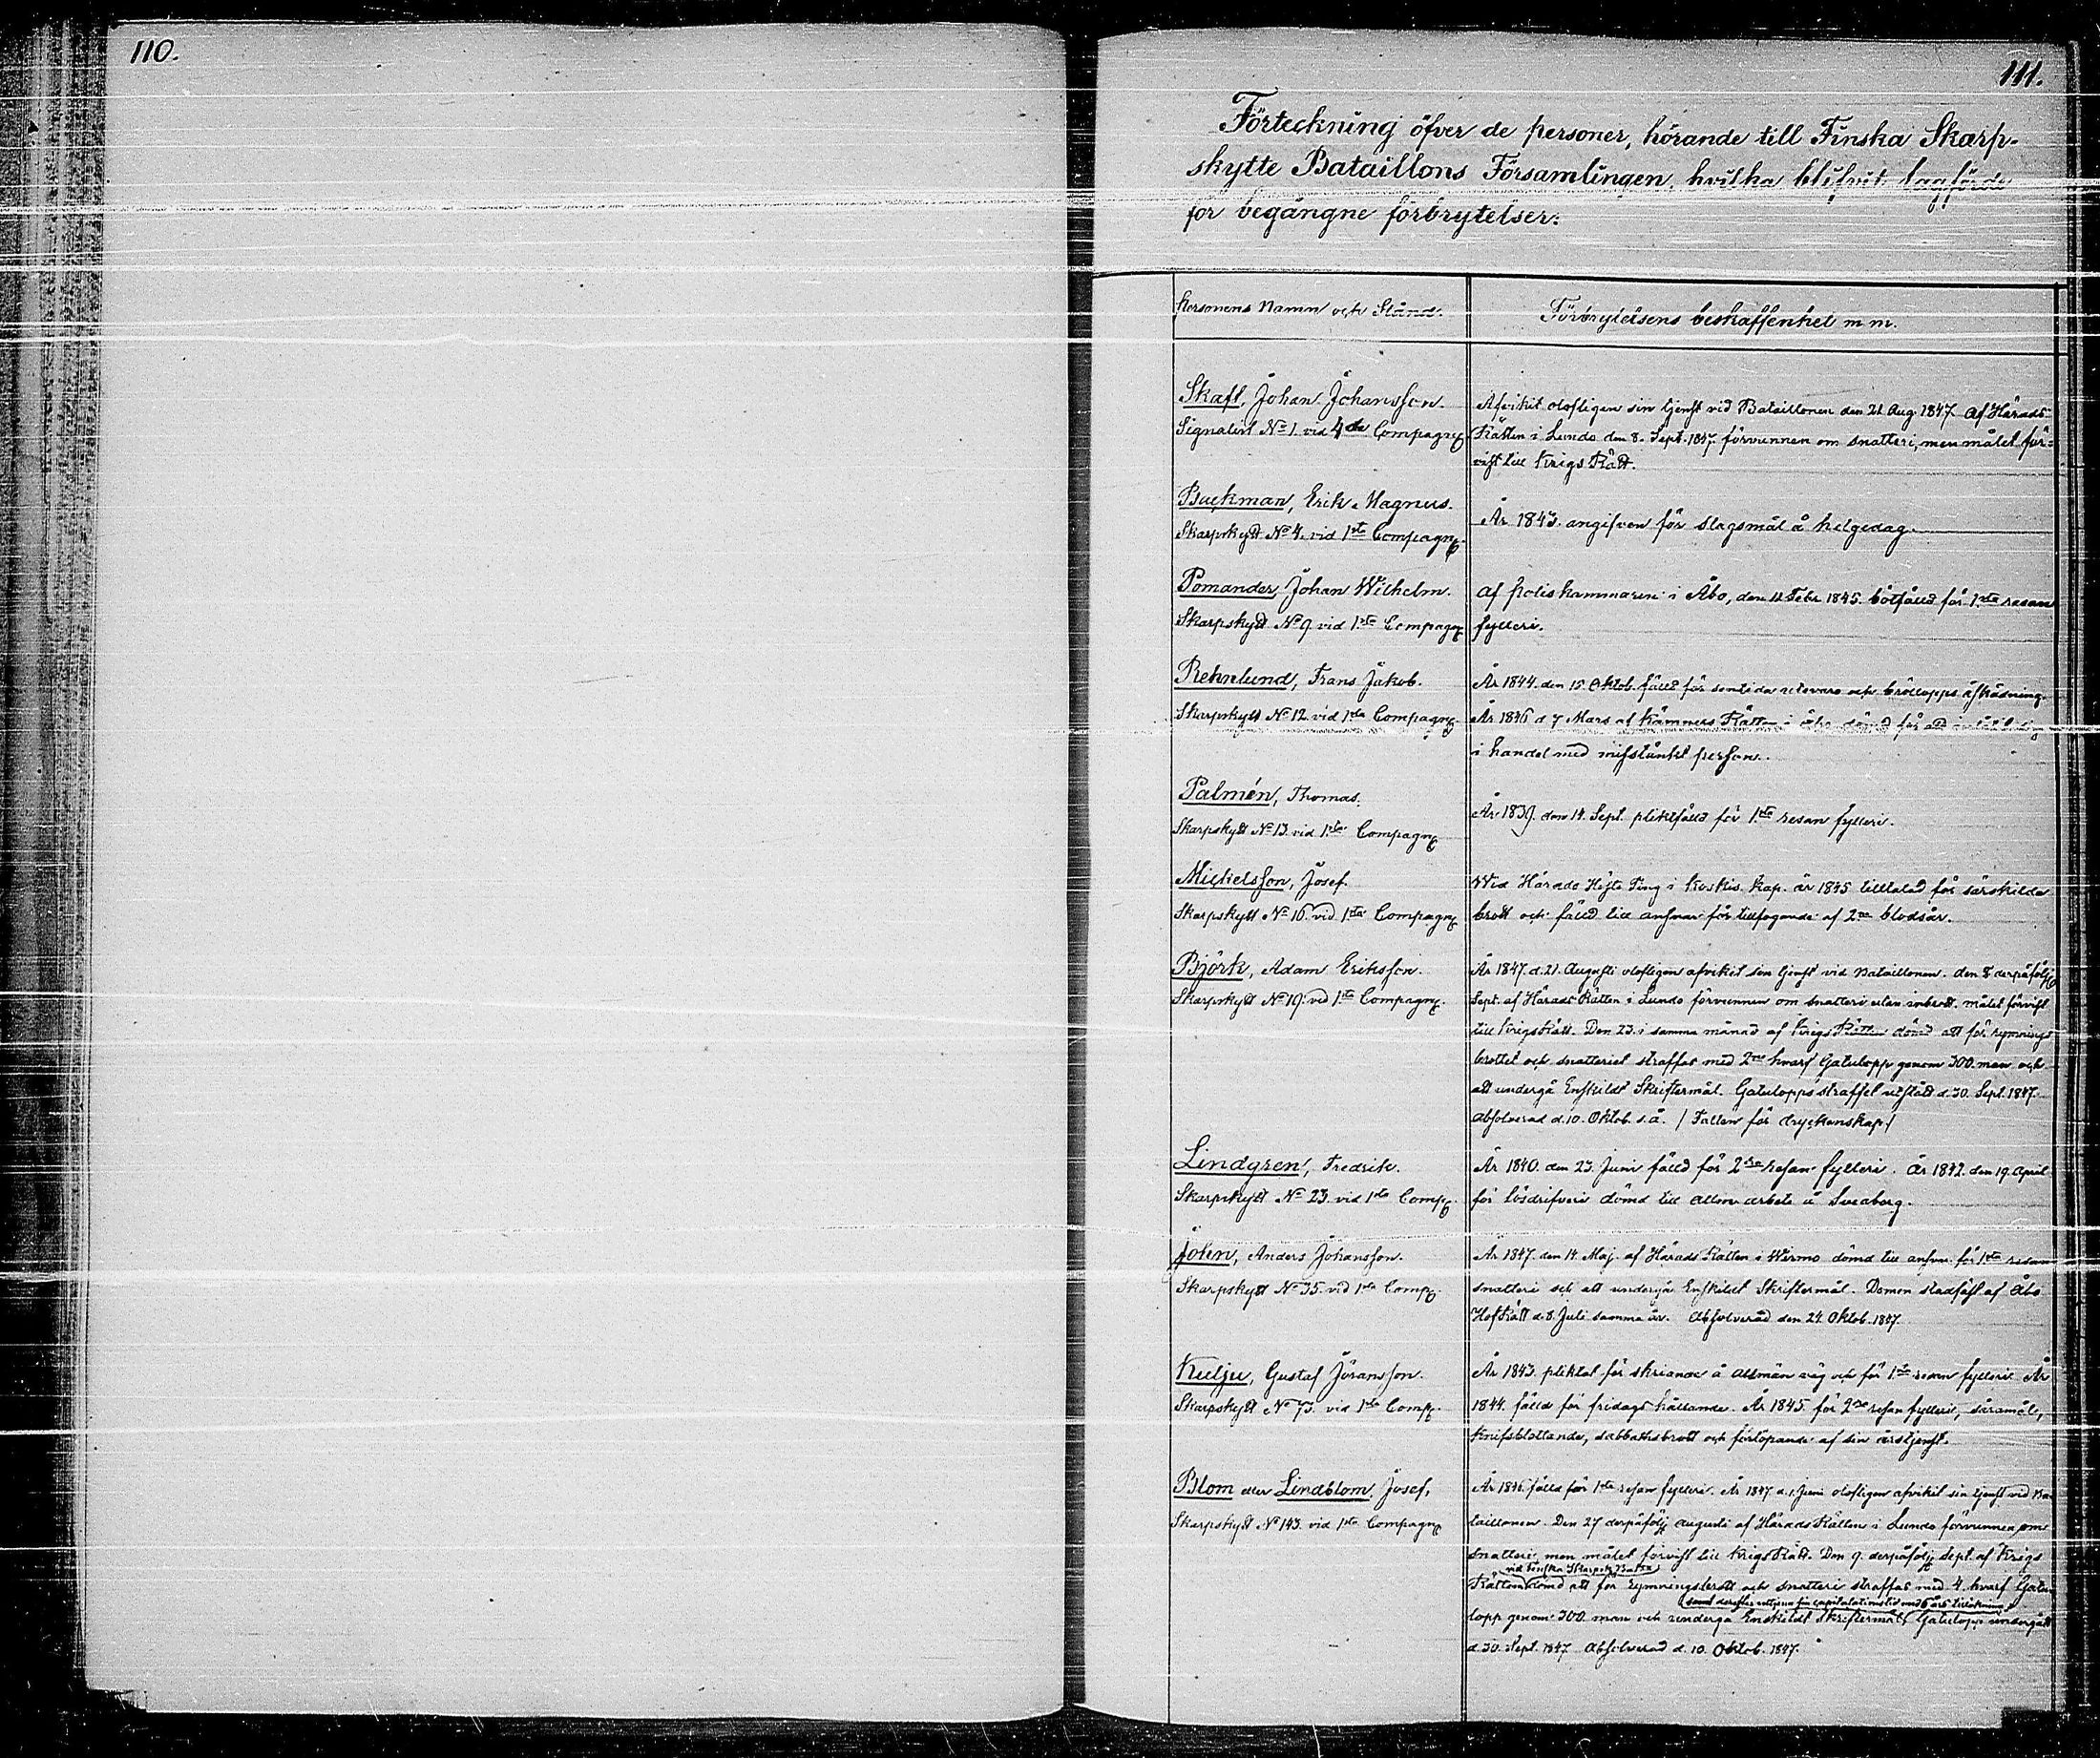 110.
111.
Förteckning öfver de personer, hörande till Finska Skarp-
skytte Bataillons Församlingen, hvilka blifvit lagförde
för begångne förbrytelser.
Personens Namn och Stånd.
Förbrytelsens beskaffenhet m m.
Skaft, Johan Johansson.
Signalist No 1. vid 4de Compagn
Afvikit olofligen sin tjenst vid Bataillonen den 21 Aug. 1847. Af Härads-
Rätten i Lundo den 8. Sept. 1847. förvunnen om snatteri, men målet för-
vist till Krigs Rätt.
Backman, Erik Magnus.
Skarpskytt No 4. vid 1sta Compagn.
År 1843. angifven för slagsmål å helgedag.
Pomander, Johan Wilhelm.
Skarpskytt No 9 vid 1sta Compagn
Af Poliskammaren i Åbo, den 11 Febr 1845. botfälld för 1sta resan
fylleri.
Rehnlund, Frans Jakob.
Skarpskytt No 12. vid 1sta Compagn.
År 1844. den 15. Oktob. fälld för sentida utevaro och bröllopps åskådning.
År 1846 d 7 Mars af Kämners Rätten i Åbo dömd för att
i handel med misstänkt person.
Palmén, Thomas.
Skarpskytt No 13. vid 1sta Compagn
År 1839. den 14. Sept. pliktfälld för 1sta resan fylleri.
Mickelsson, Josef.
Skarpskytt No 16. vid 1sta Compagn
Wid Härads Höste Ting i Koskis Kap. år 1845 tilltalad för särskilda
brott och fälld till ansvar för tillfogande af 2ne blodsår.
Björk, Adam Eriksson.
Skarpskytt No 19. vid 1sta Compagn.
År 1847. d. 21. Augusti olofligen afvikit sin tjenst vid Bataillonen. den 8 derpåfölj
Sept. af Härads Rätten i Lundo förvunnen om snatteri utan inbrott. målet förvist
till Krigs Rätt. Den 23. i samma månad af Krigs Rätten dömd att för rymnings
brottet och snatteriet straffas med 2ne hvarf Gatulopp genom 300. man och
att undergå Enskildt Skriftermål. Gatuloppsstraffet utstått d. 30. Sept. 1847.
Absolverad d. 10. Oktob. s. å. / Fallen för dryckenskap /
Lindgren, Fredrik.
Skarpskytt No 23. vid 1sta Comp.
År 1840. den 23. Juni fälld för 2dra resan fylleri. År 1842. den 19. April
för lösdrifveri dömd till allm. arbete å Sveaborg.
John, Anders Johansson.
Skarpskytt No 35. vid 1sta Comp.
År 1847. den 14. Maj. af Härads Rätten i Wirmo dömd till ansvar för 1sta resan
snatteri och att undergå Enskildt Skriftermål. Domen stadfäst af Åbo
Hof Rätt d. 8. Juli samma år. Absolverad den 24. Oktob. 1847.
Kulju, Gustaf Jöransson.
Skarpskytt No 73. vid 1sta Comp.
År 1843. pliktat för skriande å allmän väg och för 1sta resan fylleri. År
1844. fälld för fridags hållande. År 1845. för 2dra resan fylleri, såramål,
knifsblottande, sabbathsbrott och förlöpande af sin årstjenst.
Blom eller Lindblom, Josef,
Skarpskytt No 143. vid 1sta Compagn
År 1846. fälld för 1sta resan fylleri. År 1847 d. 1. Juni olofligen afvikit sin tjenst vid Ba-
taillonen. Den 27 derpåfölj Augusti af Härads Rätten i Lundo förvunnen om
snatteri, men målet förvist till Krigs Rätt. Den 9. derpåfölj. Sept. af Krigs
vid Finska Skarpsk. Bat.
Rätten dömd att för rymningsbrott och snatteri straffas med 4. hvarf Gatu-
samt derefter uttjena sin capitulationstid med 6 års tillökning
lopp genom 300 man och undergå Enskildt Skriftermål. Gatulopp undergått
d. 30. Sept. 1847. Absolverad d. 10. Oktob. 1847.